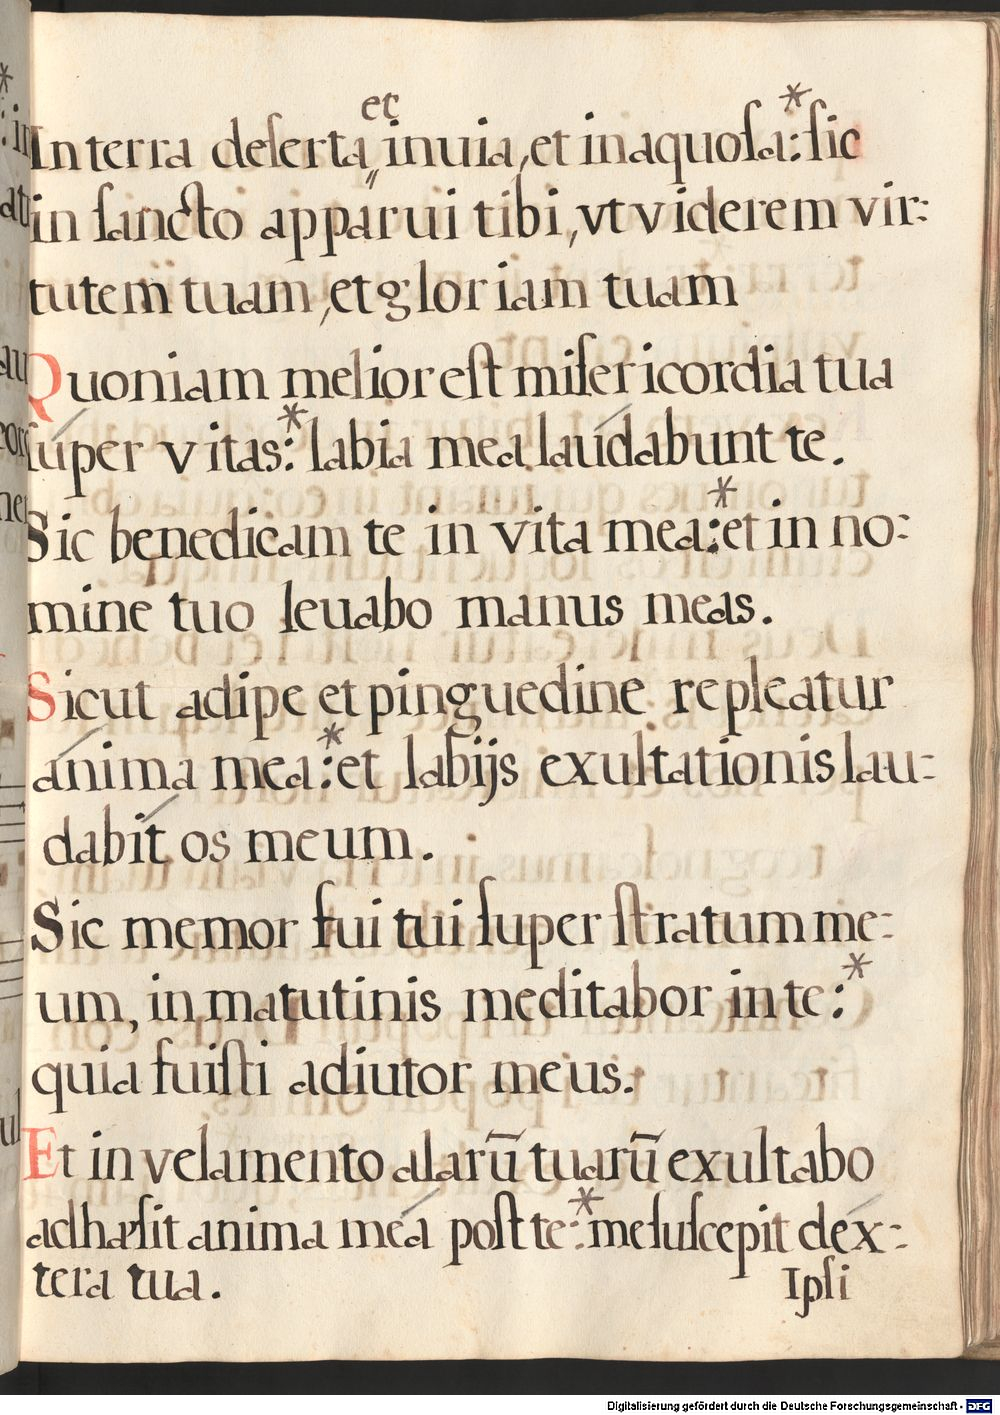 et
In terra deſerta inuia, et inaquoſa:* ſic
in ſancto apparui tibi, vt viderem vir:
tutem tuam, et gloriam tuam
Quoniam melior eſt miſericordia tua
ſúper vitas:* labia mea laúdabunt te.
Sic benedicam te in vita mea:* et in no:
mine tuo leuabo manus meas.
Sicut adipe et pinguedine repleatur
ánima mea:* et labijs exultationis lau:
dabít os meum.
Sic memor fui tui ſuper ſtratum me:
um, in matutinis meditabor in te:*
quia fuiſti adiutor meus.
Et in velamento alarū tuarū exultabo
adhæſit anima meá poſt te:* me ſuſcepit déx:
tera tua.
Ipſi
Digitalisierung gefördert durch die Deutsche Forschungsgemeinschaft - DFG